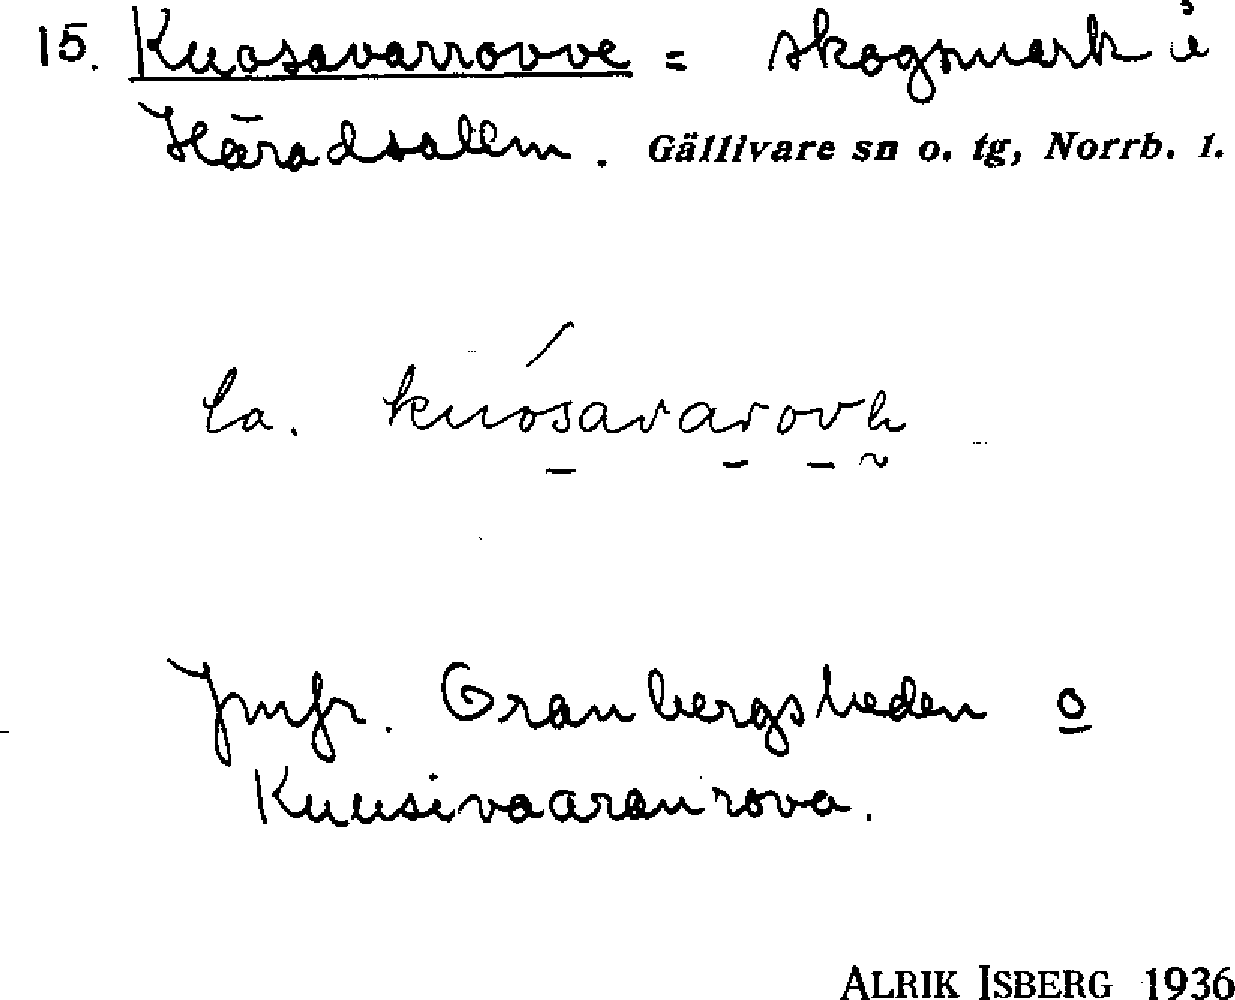 15. Kuosavarrovve = skogsmark i
Häradsallm. Gällivare sn o. tg, Norrb. l.
la. kuósavarovƕ
Jmfr. Granbergsheden o
Kuusivaaranrova.
ALRIK ISBERG 1936